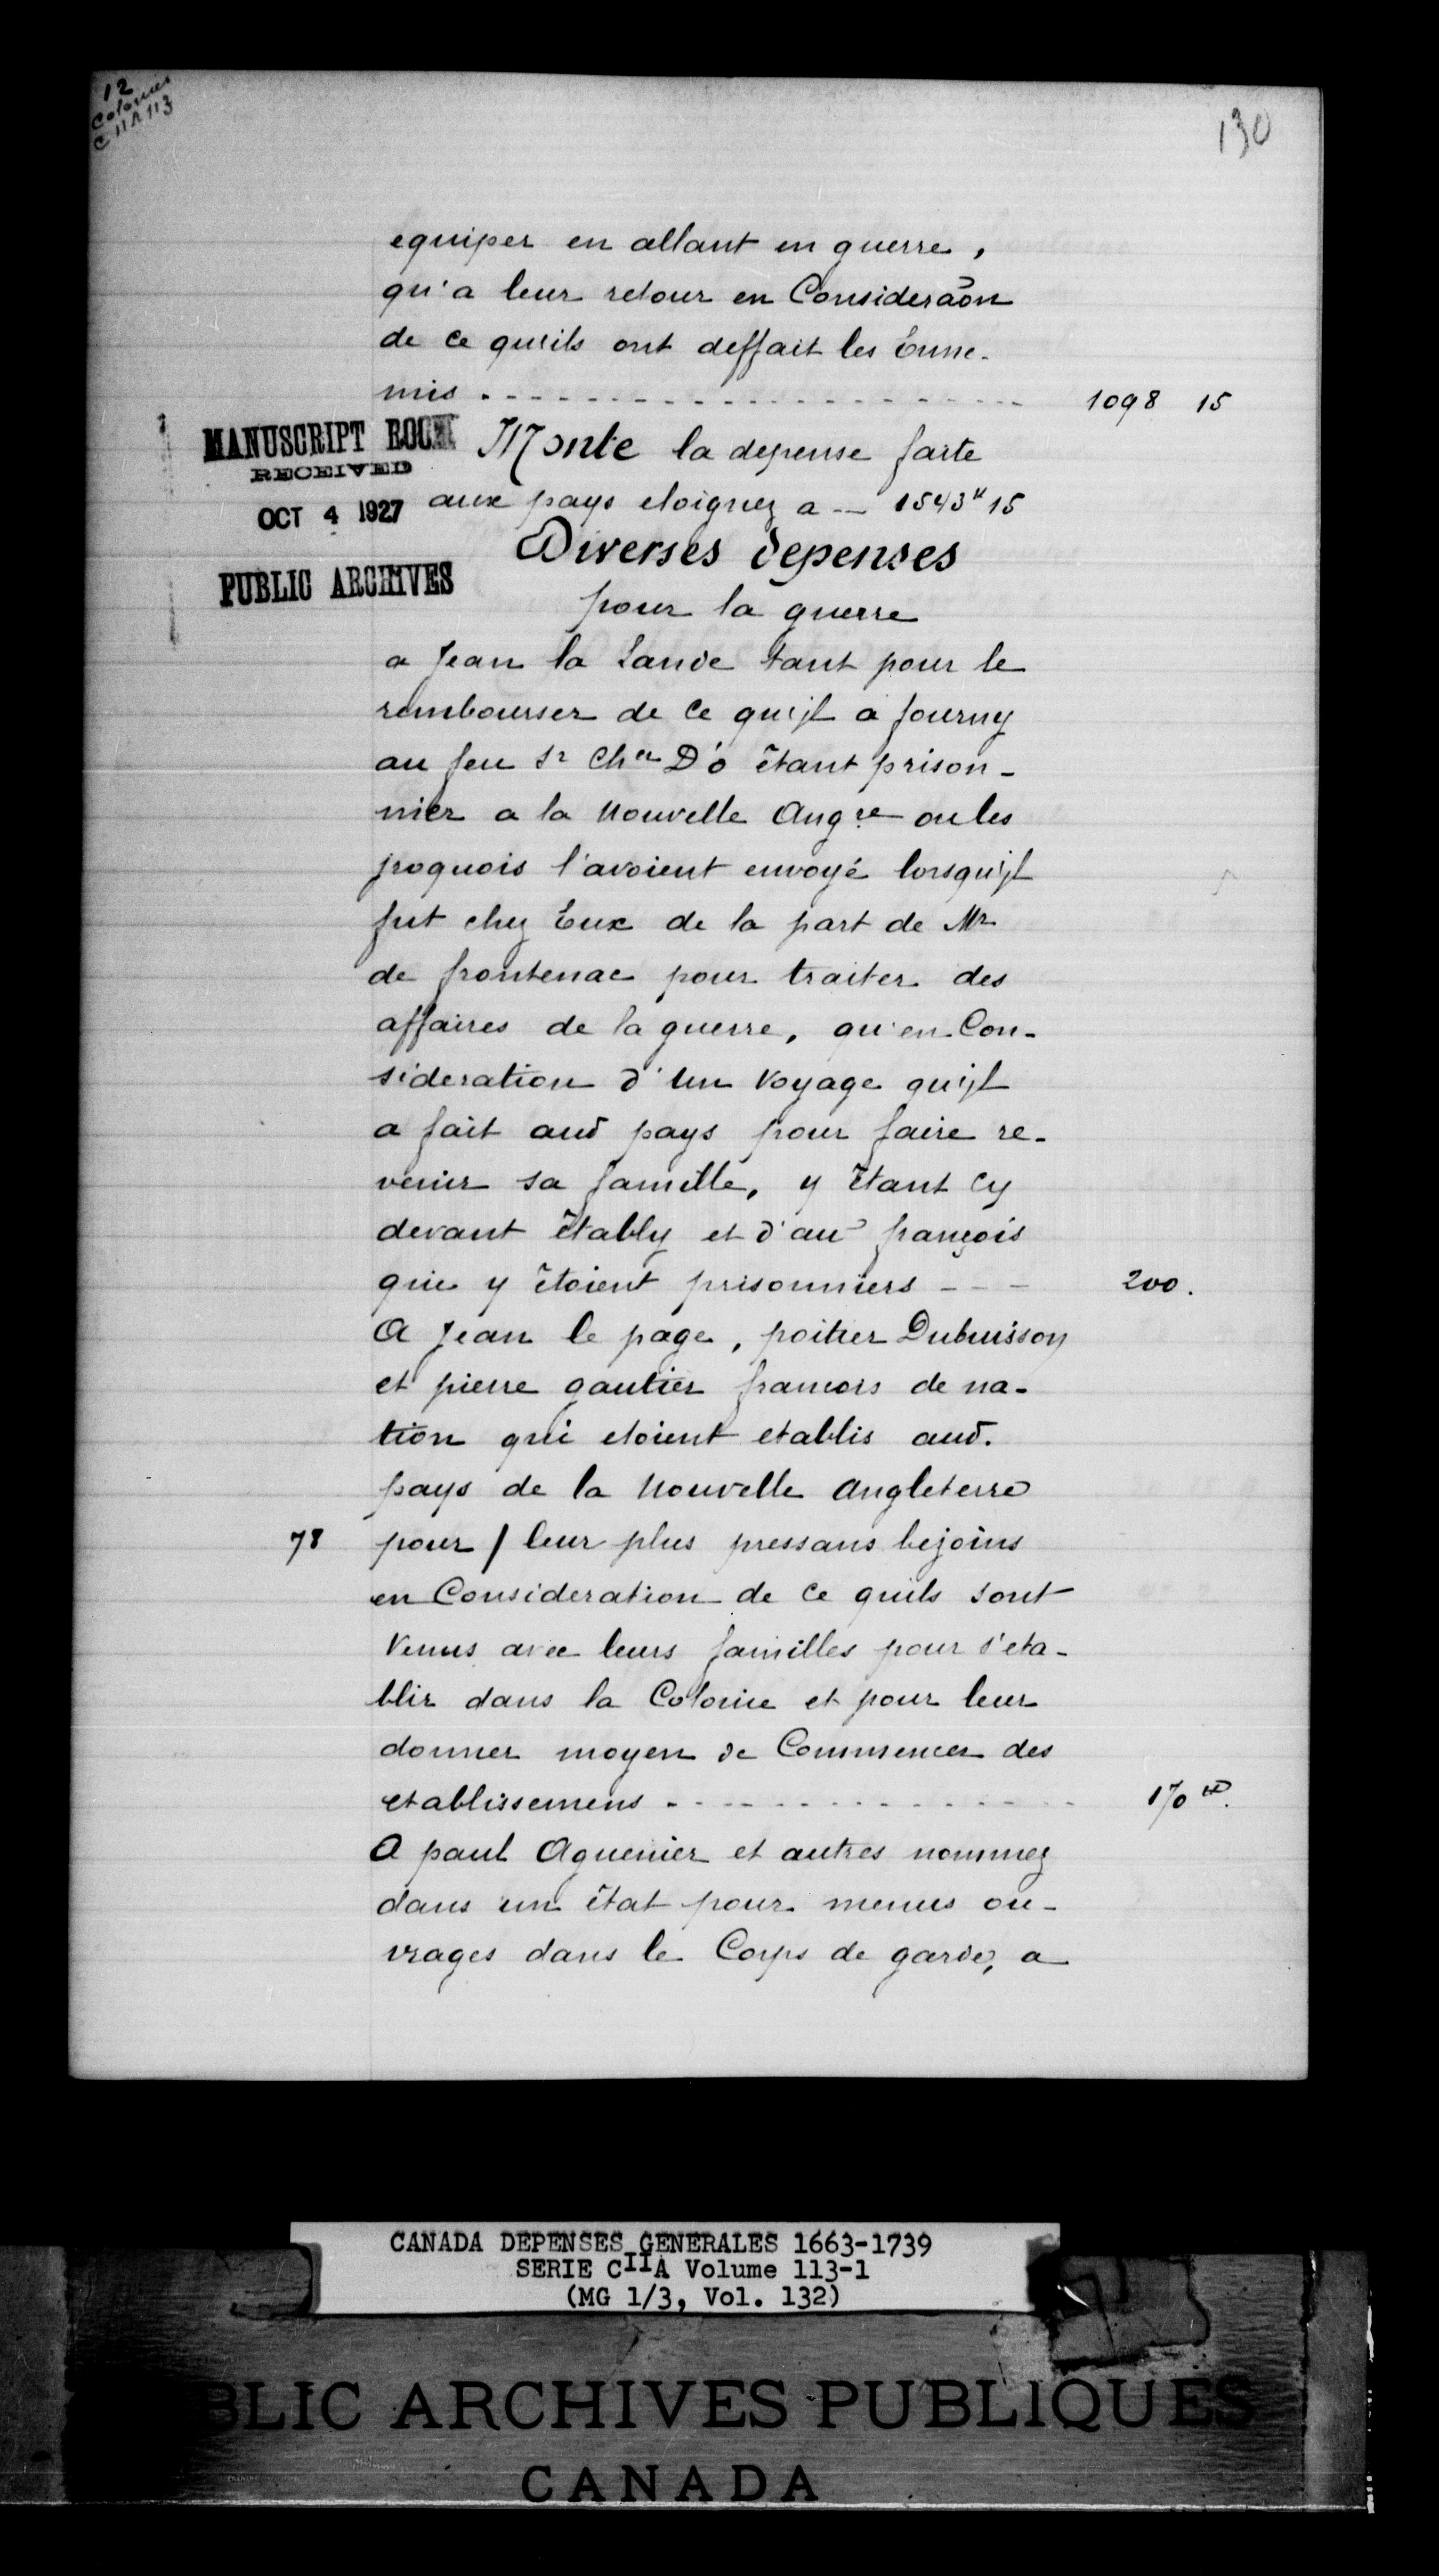 12
Colonies
C 11 A 113
130
equiper en allant en guerre,
qu'a leur retour en Consideraõn
de ce qu'ils ont deffait les Enne-
mis - - - - - - - - - - 1098 15
MANUSCRIPT ROOM
RECEIVED
OCT 4 1927
PUBLIC ARCHIVES
Monte la depense faite
aux pays eloignez a — 1543# 15
Diverses depenses
pour la guerre
a Jean la Lande tant pour le
rembourser de ce qu'jl a fourny
au feu Sr Cher D'o étant prison-
nier a la Nouvelle Angre ou les
jroquois l'avoient envoyé lorsqu'jl
fut chez Eux de la part de Mr
de frontenac pour traiter des
affaires de la guerre, qu'en Con-
sideration d'un Voyage qu'jl
a fait aud pays pour faire re-
venir sa famille, y étant cy
devant étably et d'au françois
qui y étoient prisonniers - - - 200.
A Jean le page, poitier Dubuisson
et pierre gautier francois de na-
tion qui etoient etablis aud.
pays de la Nouvelle Angleterre
78 pour / leur plus pressans besoins
en Consideration de ce quils sont
Venus avec leurs familles pour s'eta-
blir dans la Colonie et pour leur
donner moyen de Commencer des
etablissemens - - - - - - - - 170 #.
A paul Aguenier et autres nommez
dans un état pour menus ou-
vrages dans le Corps de garde, a
CANADA DEPENSES GENERALES 1663-1739
SERIE CIIA Volume 113-1
(MG 1/3, Vol. 132)
BLIC ARCHIVES PUBLIQUES
CANADA